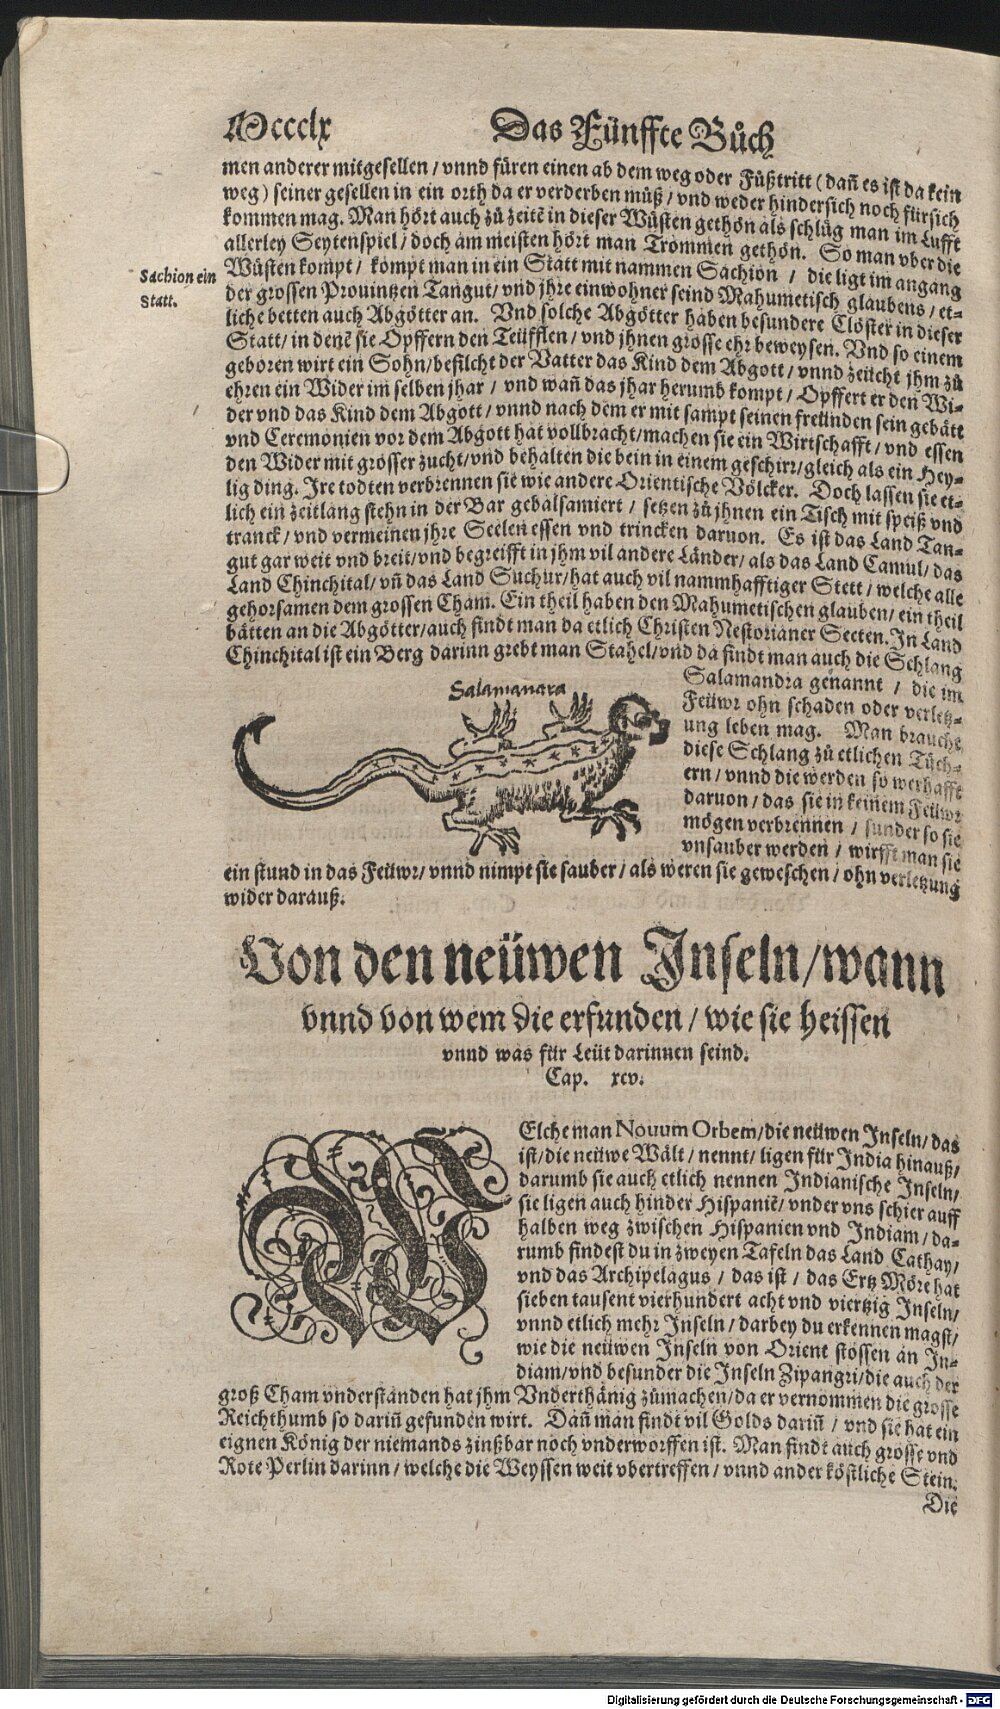 Mccclx Das Fünffte Bůch
men anderer mitgesellen / vnnd füren einen ab dem weg oder Fůßtritt (dañ es ist da kein
weg) seiner gesellen in ein orth da er verderben můß / vnd weder hindersich noch fürsich
kommen mag. Man hört auch zů zeitē in dieser Wüsten gethön als schlůg man im Lufft
allerley Seytenspiel / doch am meisten hört man Trommen gethön. So man vber die
Wüsten kompt / kompt man in ein Statt mit nammen Sachion / die ligt im angang
Sachion ein
Statt.
der grossen Prouintzen Tangut / vnd jhre einwohner seind Mahumetisch glaubens / et-
liche betten auch Abgötter an. Vnd solche Abgötter haben besundere Clöster in dieser
Statt / in denē sie Opffern den Teüfflen / vnd jhnen grosse ehr beweysen. Vnd so einem
geboren wirt ein Sohn / befilcht der Vatter das Kind dem Abgott / vnnd zeücht jhm zů
ehren ein Wider im selben jhar / vnd wañ das jhar herumb kompt / Opffert er den Wi-
der vnd das Kind dem Abgott / vnnd nach dem er mit sampt seinen freünden sein gebätt
vnd Ceremonien vor dem Abgott hat vollbracht / machen sie ein Wirtschafft / vnd essen
den Wider mit grosser zucht / vnd behalten die bein in einem geschirr / gleich als ein Hey-
lig ding. Ire todten verbrennen sie wie andere Orientische Völcker. Doch lassen sie et-
lich ein zeitlang stehn in der Bar gebalsamiert / setzen zů jhnen ein Tisch mit speiß vnd
tranck / vnd vermeinen jhre Seelen essen vnd trincken daruon. Es ist das Land Tan-
gut gar weit vnd breit / vnd begreifft in jhm vil andere Länder / als das Land Camul / das
Land Chinchital / vñ das Land Suchur / hat auch vil nammhafftiger Stett / welche alle
gehorsamen dem grossen Cham. Ein theil haben den Mahumetischen glauben / ein theil
bätten an die Abgötter / auch findt man da etlich Christen Nestorianer Secten. In Land
Chinchital ist ein Berg darinn grebt man Stahel / vnd da findt man auch die Schlang
Salamandra
Salamandra genannt / die im
Feüwr ohn schaden oder verletz-
ung leben mag. Man brauche
diese Schlang zů etlichen Tüch-
ern / vnnd die werden so werhafft
daruon / das sie in keinem Feüwr
mögen verbrennen / sunder so sie
vnsauber werden / wirfft man sie
ein stund in das Feüwr / vnnd nimpt sie sauber / als weren sie geweschen / ohn verletzung
wider darauß.
Von den neüwen Inseln / wann
vnnd von wem die erfunden / wie sie heissen
vnnd was für Leüt darinnen seind.
Cap. xcv.
WElche man Nouum Orbem / die neüwen Inseln / das
ist / die neüwe Wält / nennt / ligen für India hinauß /
darumb sie auch etlich nennen Indianische Inseln /
sie ligen auch hinder Hispaniē / vnder vns schier auff
halben weg zwischen Hispanien vnd Indiam / da-
rumb findest du in zweyen Tafeln das Land Cathay /
vnd das Archipelagus / das ist / das Ertz Möre hat
sieben tausent vierhundert acht vnd viertzig Inseln /
vnnd etlich mehr Inseln / darbey du erkennen magst /
wie die neüwen Inseln von Orient stossen an In-
diam / vnd besunder die Inseln Zipangri / die auch der
groß Cham vnderstanden hat jhm Vnderthänig zůmachen / da er vernommen die grosse
Reichthumb so dariñ gefunden wirt. Dañ man findt vil Golds dariñ / vnd sie hat ein
eignen König der niemands zinßbar noch vnderworffen ist. Man findt auch grosse vnd
Rote Perlin darinn / welche die Weyssen weit vbertreffen / vnnd ander köstliche Stein.
Die
Digitalisierung gefördert durch die Deutsche Forschungsgemeinschaft - DFG